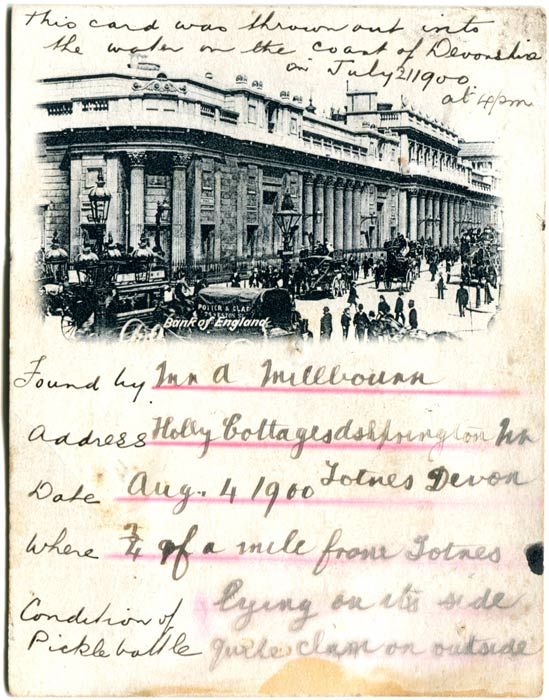 This card was thrown out into
the water on the coast of Devonshire
on July 21 1900
at 4pm
POTTER & CLAR
Bank of England
Found by Mr A Millbourn
Address Holly Cottages Ashprington Nr
Totnes Devon
Date Aug. 4 1900
Where 3/4 of a mile from Totnes
Condition of Pickle bottle lying on its side
quite clam on outside